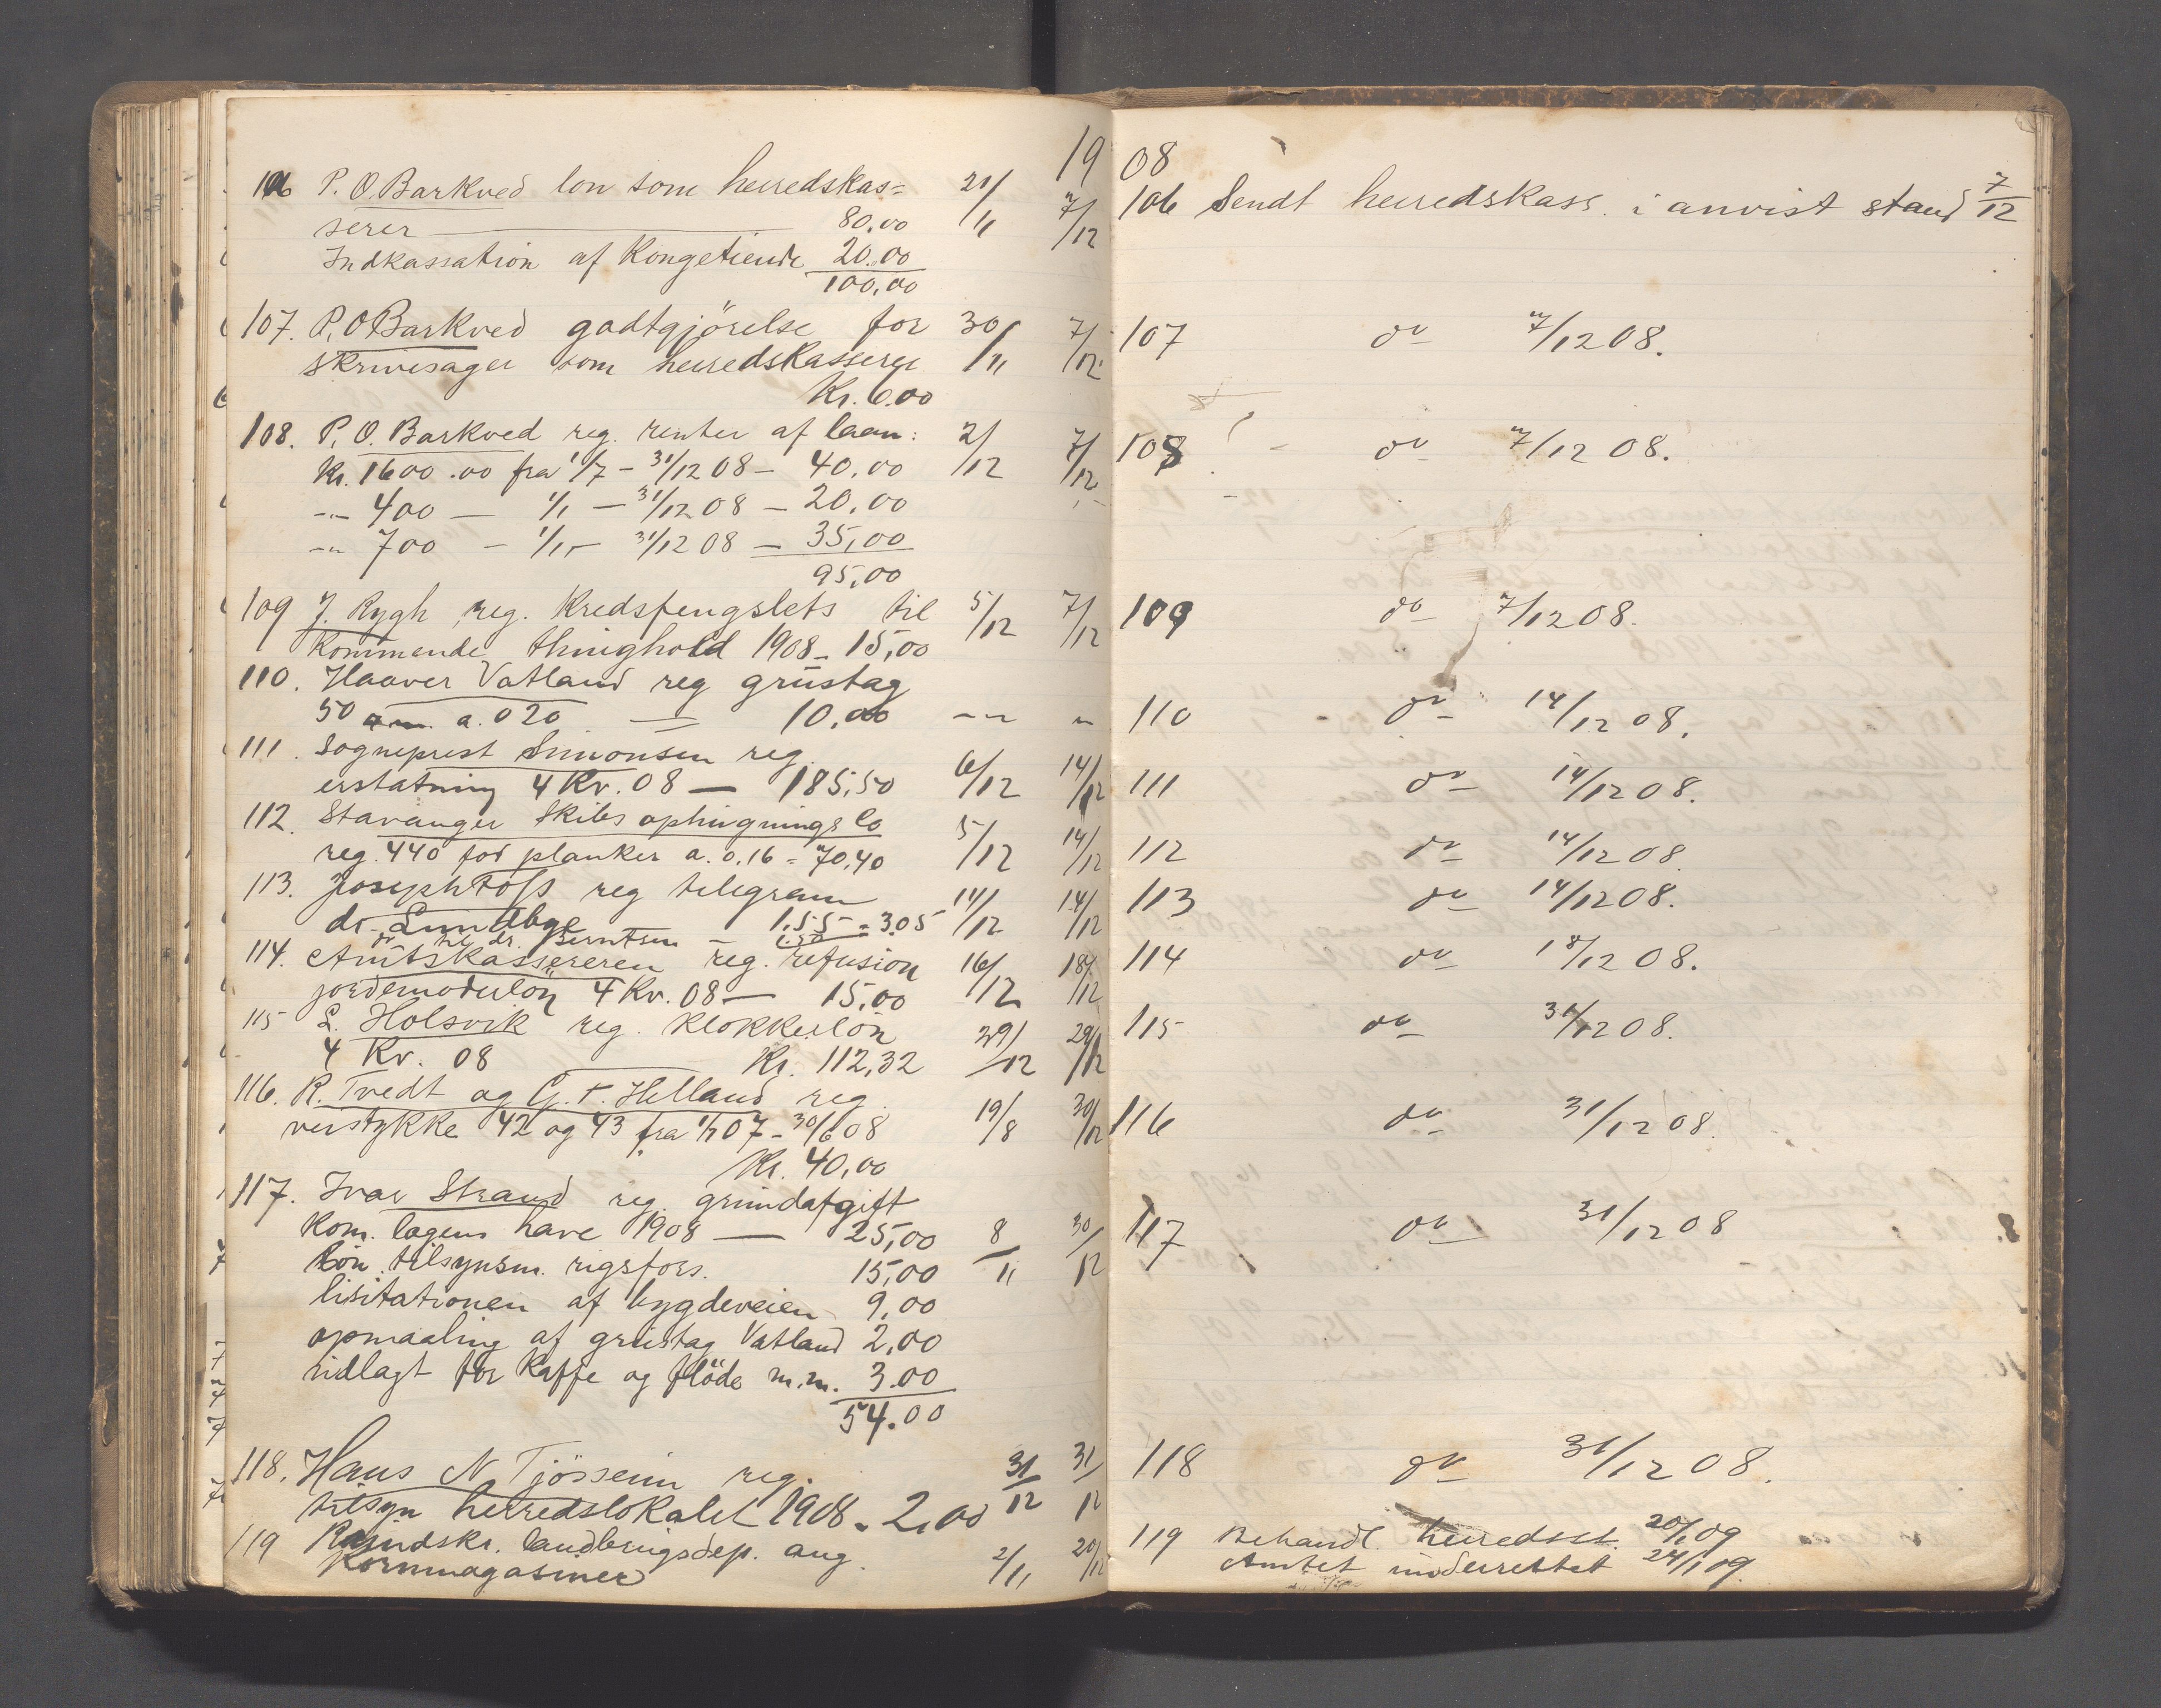 1908
106 P. O. Barkved lön som herredskas=
serer 80,00 21/11 7/12
Indkassation af Kongetiende 20.00
100,00
107. P. O Barkved godtgjörelse for 30/11 7/12
skrivesager som herredskasserer
Kr. 6.00
108. P. O. Barkved reg. renter af laan: 2/12 7/12
Kr. 1600.00 fra 1/7 - 31/12 08 - 40,00
-"- 400 - 1/1 - 31/12 08 - 20,00
-"- 700 - 1/1 - 31/12 08 - 35,00
95,00
109 J. Rygh reg. Kredsfengslets til 5/12 7/12
Kommende thinghold 1908 - 15,00
110. Haaver Vatland reg grüstag
50 a. 0 20 — 10,00 -"- "
111. Sogneprest Simonsen reg.
erstatning 4 Kv. 08 — 185,50 6/12 14/12
112. Stavanger Skibsophugnings Co
reg. 440 fod planker a. 0,16 = 70,40 5/12 14/12
113. Joseph Foss reg telegram 11/12 14/12
dr. Lundbye 1,55 = 3.05
do til dr. Berntsen - 1.50
114. Amtskassereren reg. refusion 16/12 18/12
jordemoderlön 4 Kv. 08 — 15,00
115 L. Holsvik reg. Klokkerlön 29/12 29/12
4 Kv. 08 Kr. 112,32
116. R. Tvedt og G. T. Helland reg.
verstykke 42 og 43 fra 1/7 07 - 30/6 08 19/8 30/12
Kr. 40,00
117. Ivar Strand reg. grundafgift
Kom. lagens have 1908 — 25,00 8/11 30/12
Lön tilsynsm. rigsfors. 15,00
lisitationen af bygdeveien 9,00
opmaaling af grüstag Vatland 2,00
udlagt for Kaffe og flöde m.m. 3.00
54.00
118. Hans N. Tjössem reg. 31/12 31/12
tilsyn herredslokalet 1908 - 2,00
119 Rundskr. landbrugsdep. ang. 2/11 20/12
Kornmagasiner
106 Sendt herredskass. i anvist stand 7/12
107 do 7/12 08.
108 - do 7/12 08.
109 do 7/12 08.
110 do 14/12 08.
111 do 14/12 08.
112 do 14/12 08
113 do 14/12 08.
114 do 18/12 08.
115 do 31/12 08.
116 do 31/12 08.
117 do 31/12 08
118 do 31/12 08.
119 Behandl. herredsst. 20/1 09
Amtet underrettet 24/1 09.